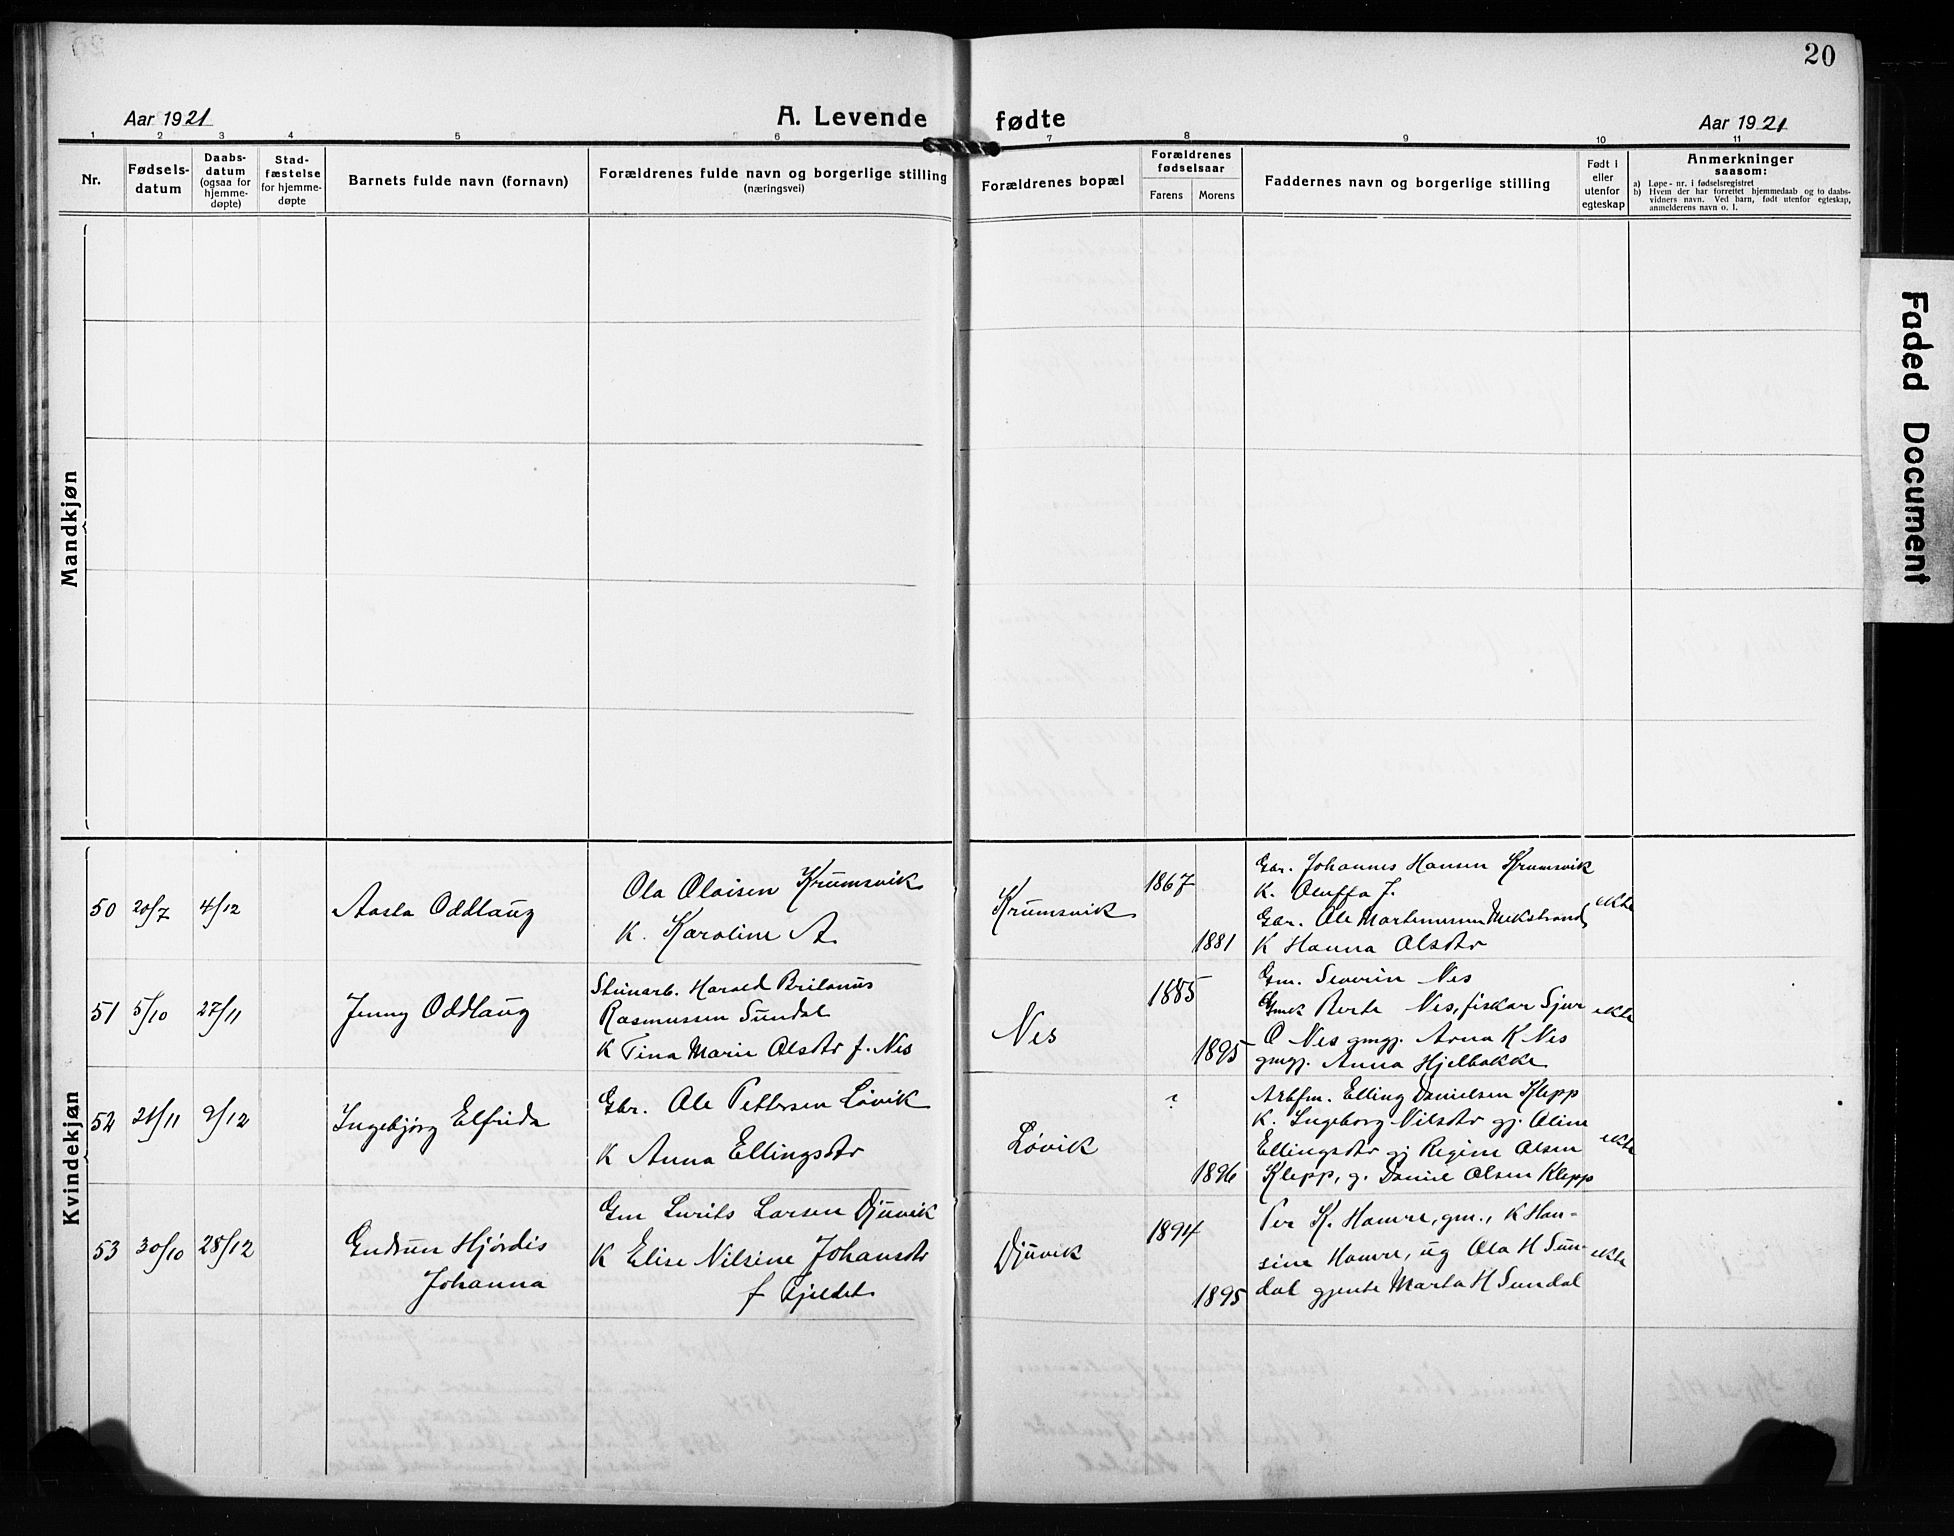 20
Aar 1921
A. Levende
fødte
Aar 1921
1 2 3 4 5 6 7 8 9 10 11
Nr.
Fødsels-
datum
Daabs-
datum
(ogsaa for
hjemme-
døpte)
Stad-
fæstelse
for hjemme-
døpte
Barnets fulde navn (fornavn)
Forældrenes fulde navn og borgerlige stilling
(næringsvei)
Forældrenes bopæl
Forældrenes
fødselsaar
Farens
Morens
Faddernes navn og borgerlige stilling
Født i
eller
utenfor
egteskap
Anmerkninger
saasom:
a) Løpe-nr. i fødselsregistret
b) Hvem der har forrettet hjemmedaab og to daabs-
vidners navn. Ved barn, født utenfor egteskap,
anmelderens navn o. l.
Mandkjøn
Kvindekjøn
50 20/7 4/12
Aasta Oddlaug
Ola Olaisen Krumsvik
K. Karoline A.
Krumsvik
1867
1881
Gbr. Johannes Hansen Krumsvik
K. Oluffa J.
Gbr. Ole Martinussen
K Hanna Olsdtr
ekte
51 5/10 27/11
Jenny Oddlaug
Harald
Rasmussen Sundal
K Tina Marie Olsdtr f. Nes
Nes
1885
1895
Gm. Severin Nes
Berte Nes, fiskar Sjur
O Nes gmgj. Anna K Nes
gmgj. Anna Hjelbakke
ekte
52 21/11 9/12
Ingebjørg Elfrida
Gbr. Ole Pettersen Løvik
K Anna Ellingsdtr
Løvik
?
1896
Arbfm. Elling Danielsen Klepp
K. Ingeborg Nilsdtr gj. Oline
Ellingsdtr gj Regine Olsen
Klepp, g. Daniel Olsen Klepp
ekte
53 30/10 28/12
Gudrun Hjørdis
Johanna
Gm Lurits Larsen Djuvik
K Elise Nilsine Johansdtr
f Fjeldet
Djuvik
1894
1895
Per K. Hamre, gm., K Han-
sine Hamre, ug Ola H Sun-
dal gjente Marta H Sundal
ekte
Faded Document